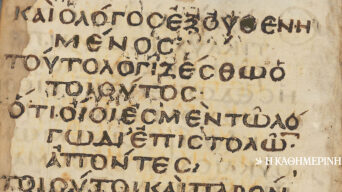 ΚΑΙΟΛΟΓΟΣΕΞΟΥΘΕΝΗ
ΜΕΝΟΣ·
ΤΟΥΤΟΛΟΓΙΖΕΣΘΩΟ
ΤΟΙΟΥΤΟΣ·
ΟΤΙΟΙΟΙΕΣΜΕΝΤΩΛΟ
ΓΩΔΙΕΠΙΣΤΟΛΩ
ΑΠΟΝΤΕΣ·
ΤΟΙΟΥΤΟΙΚΑΙΠΑΡΟΝ
Η ΚΑΘΗΜΕΡΙΝΗ